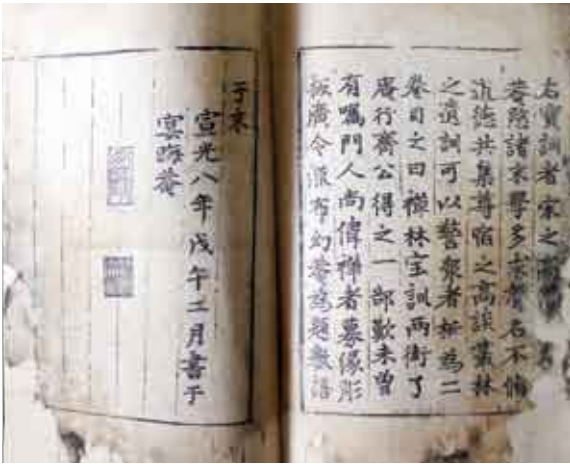 右寶訓者宋之
菴照諸末學多
道德共集尊宿之高談叢林
之遺訓可以警衆者抔爲二
卷目之曰禪林宝訓兩街了
菴行齋公得之一部歎未曾
有囑門人尚偉禪者募緣彫
板廣令流布幻菴爲題數語
于末
宣光八年戊午二月書于
宴晦菴